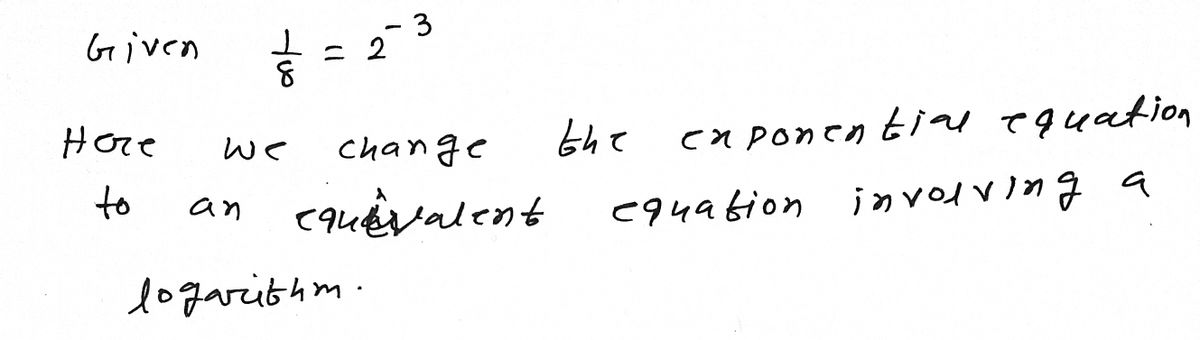 Given 1/8 = 2^-3
Here we change the exponential equation
to an equivalent equation involving a
logarithm.